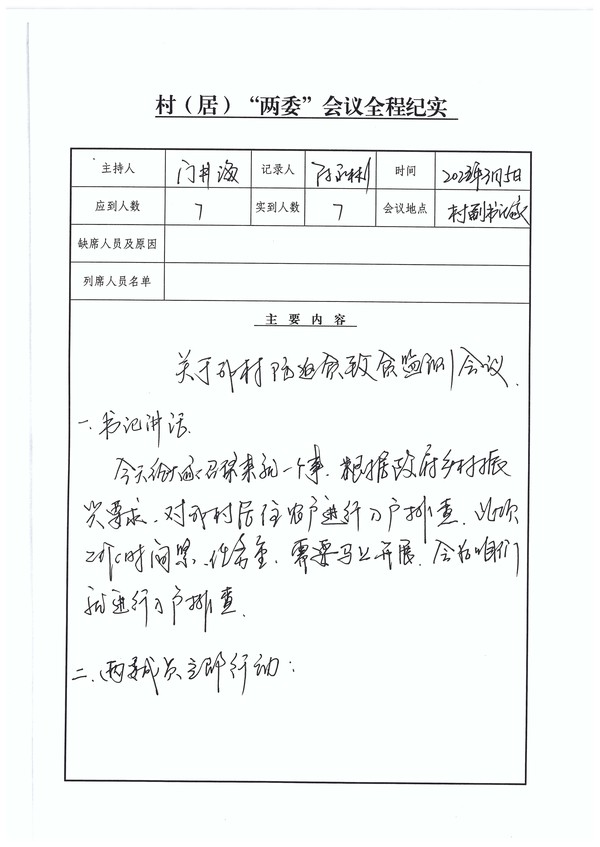 村（居）“两委”会议全程纪实
主持人 门井海 记录人 时间 2023年3月5日
应到人数 7 实到人数 7 会议地点 村副书记家
缺席人员及原因
列席人员名单
主要内容
关于我村防返贫致贫监测会议.
一.书记讲话.
今天给大家召集来就一个事.根据政府乡村振
兴要求.对我村居住农户进行入户排查.此项
工作时间紧.任务重.需要马上开展.会后咱们
就进行入户排查.
二.两委成员立即行动：